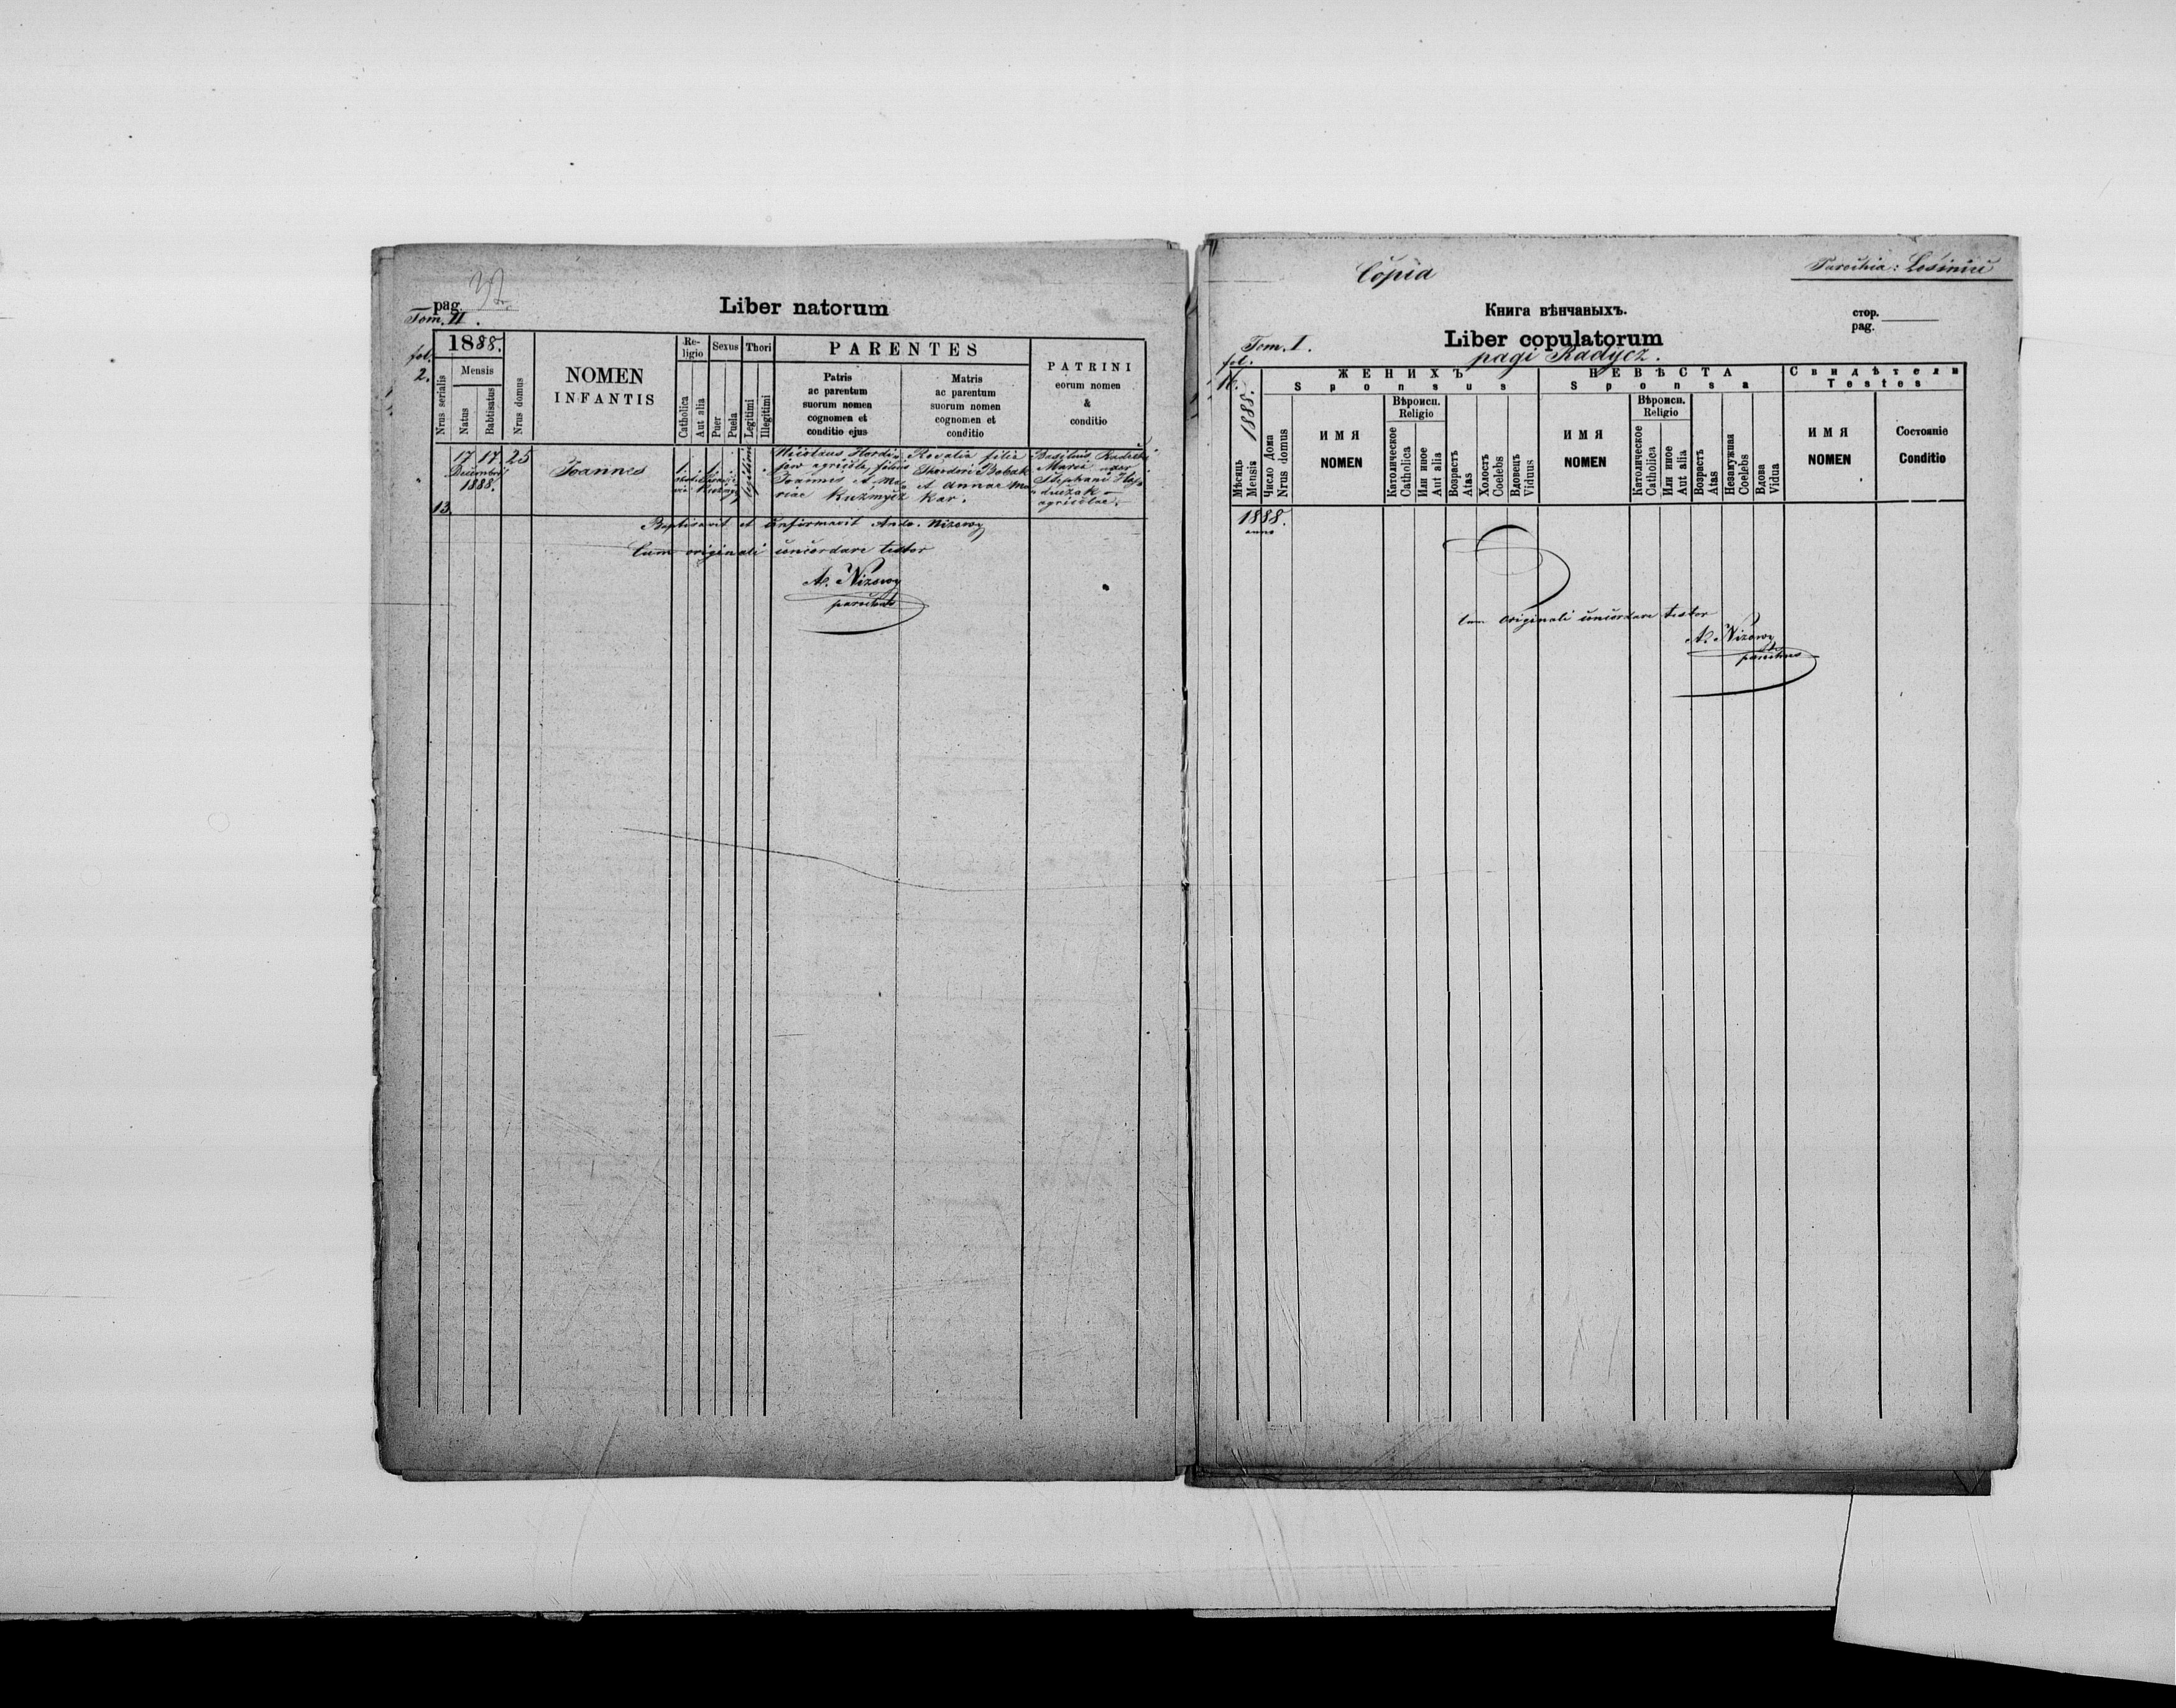 pag. 32
Tom. II.
Liber natorum
fol.
2.
1888.
Nrus serialis
Mensis
Natus
Babtisatus
Nrus domus
NOMEN
INFANTIS
Re-
ligio
Catholica
Aut alia
Sexus
Puer
Puela
Thori
Legitimi
Illegitimi
PARENTES
Patris
ac parentum
suorum nomen
cognomen et
conditio ejus
Matris
ac parentum
suorum nomen
cognomen et
conditio
PATRINI
eorum nomen
&
conditio
13.
17 17 25
Decembris
1888.
Joannes
1. 1.
legitimi
Nicolaus Hordi
jew agricola, filius
Joannis et Ma-
riae Kuzmycz
Rosalia filia
Theodori Bobak
et Annae Ma-
kar.
Basilius
Maria uxor
Stephani
agricolae.
Baptisavit et confirmavit Andr. Nizowy
Cum originali concordare testor
A. Nizowy
parochus
Copia
Parochia: Losiniec
Книга вѣнчаныхъ.
Liber copulatorum
pagi Radycz.
стор.
pag.
Tom. I.
fol.
16.
Мѣсяць 1888.
Mensis
Число Дома
Nrus domus
ЖЕНИХЪ
Sponsus
ИМЯ
NOMEN
Вѣроисп.
Religio
Католическое
Catholica
Или иное
Aut alia
Возрастъ
Atas
Холостъ
Coelebs
Вдовецъ
Viduus
НЕВѢСТА
Sponsa
ИМЯ
NOMEN
Вѣроисп.
Religio
Католическое
Catholica
Или иное
Aut alia
Возрастъ
Atas
Незамужная
Coelebs
Вдова
Vidua
Свидѣтели
Testes
ИМЯ
NOMEN
Состояніе
Conditio
1888.
anno
Cum originali concordare testor
A. Nizowy
parochus